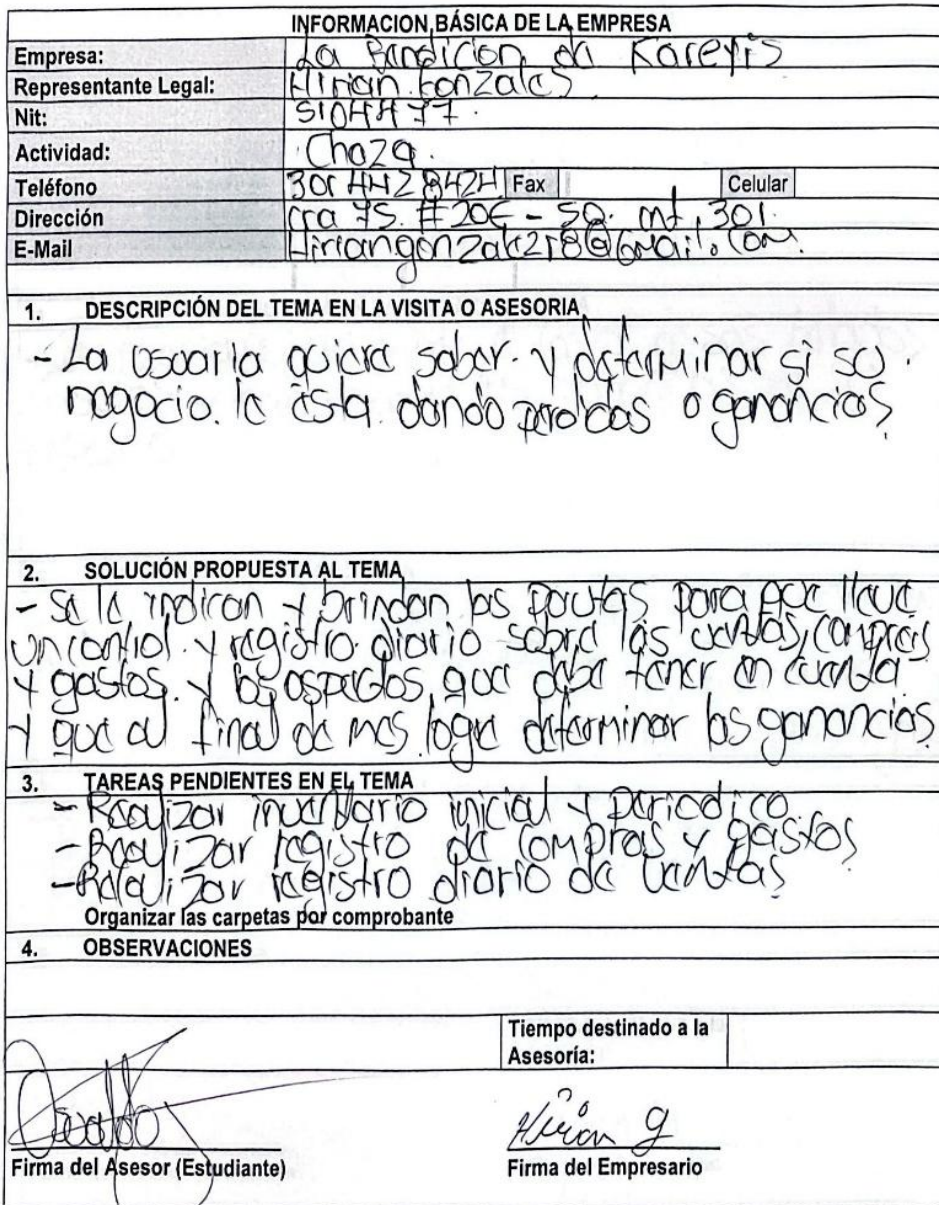 INFORMACION BÁSICA DE LA EMPRESA
Empresa: La Bendicion de Kareyis
Representante Legal: Mirian Gonzales
Nit: 5104477.
Actividad: Chaza.
Teléfono 301 4428424 Fax Celular
Dirección cra 7S. # 20E - 50. mt. 301.
E-Mail @Gmail.com
1. DESCRIPCIÓN DEL TEMA EN LA VISITA O ASESORIA
- La usuaria quiere saber. y determinar si su.
negocio. le esta. dando perdidas o ganancias
2. SOLUCIÓN PROPUESTA AL TEMA
- Se le indican y brindan las pautas para que lleve
un control. y registro. diario sobre las ventas, compras
y gastos. y los aspectos que debe tener en cuenta
y que al final de mes logre determinar las ganancias.
3. TAREAS PENDIENTES EN EL TEMA
- Realizar inventario inicial y periodico.
- Realizar registro de compras y gastos
- Realizar registro diario de ventas
Organizar las carpetas por comprobante
4. OBSERVACIONES
Tiempo destinado a la
Asesoría:
Mirian g
Firma del Asesor (Estudiante) Firma del Empresario